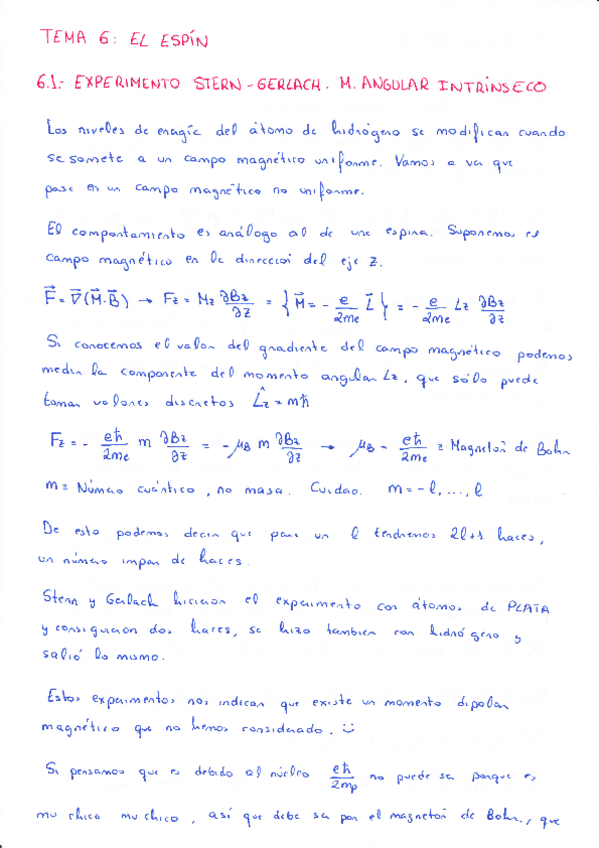 TEMA 6: EL ESPÍN
6.1.- EXPERIMENTO STERN-GERLACH. M. ANGULAR INTRÍNSECO
Los niveles de energía del átomo de hidrógeno se modifican cuando
se somete a un campo magnético uniforme. Vamos a ver que
pasa en un campo magnético no uniforme.
El comportamiento es análogo al de una espira. Suponemos el
campo magnético en la dirección del eje z.
F⃗ = ∇⃗(M⃗·B⃗) → Fz = Mz ∂Bz/∂z = { M⃗ = - e/2me L⃗ } = - e/2me Lz ∂Bz/∂z
Si conocemos el valor del gradiente del campo magnético podemos
medir la componente del momento angular Lz, que sólo puede
tomar valores discretos L̂z = mħ
Fz = - eħ/2me m ∂Bz/∂z = - μB m ∂Bz/∂z → μB - eħ/2me = Magnetón de Bohr
m = Número cuántico, no masa. Cuidao. m = -l, ..., l
De esto podemos decir que para un l tendremos 2l+1 haces,
un número impar de haces.
Stern y Gerlach hicieron el experimento con átomos de PLATA
y consiguieron dos haces, se hizo también con hidrógeno y
salió lo mismo.
Estos experimentos nos indican que existe un momento dipolar
magnético que no hemos considerado. :)
Si pensamos que es debido al núcleo eħ/2mp no puede ser porque es
mu chico mu chico, así que debe ser por el magnetón de Bohr, que